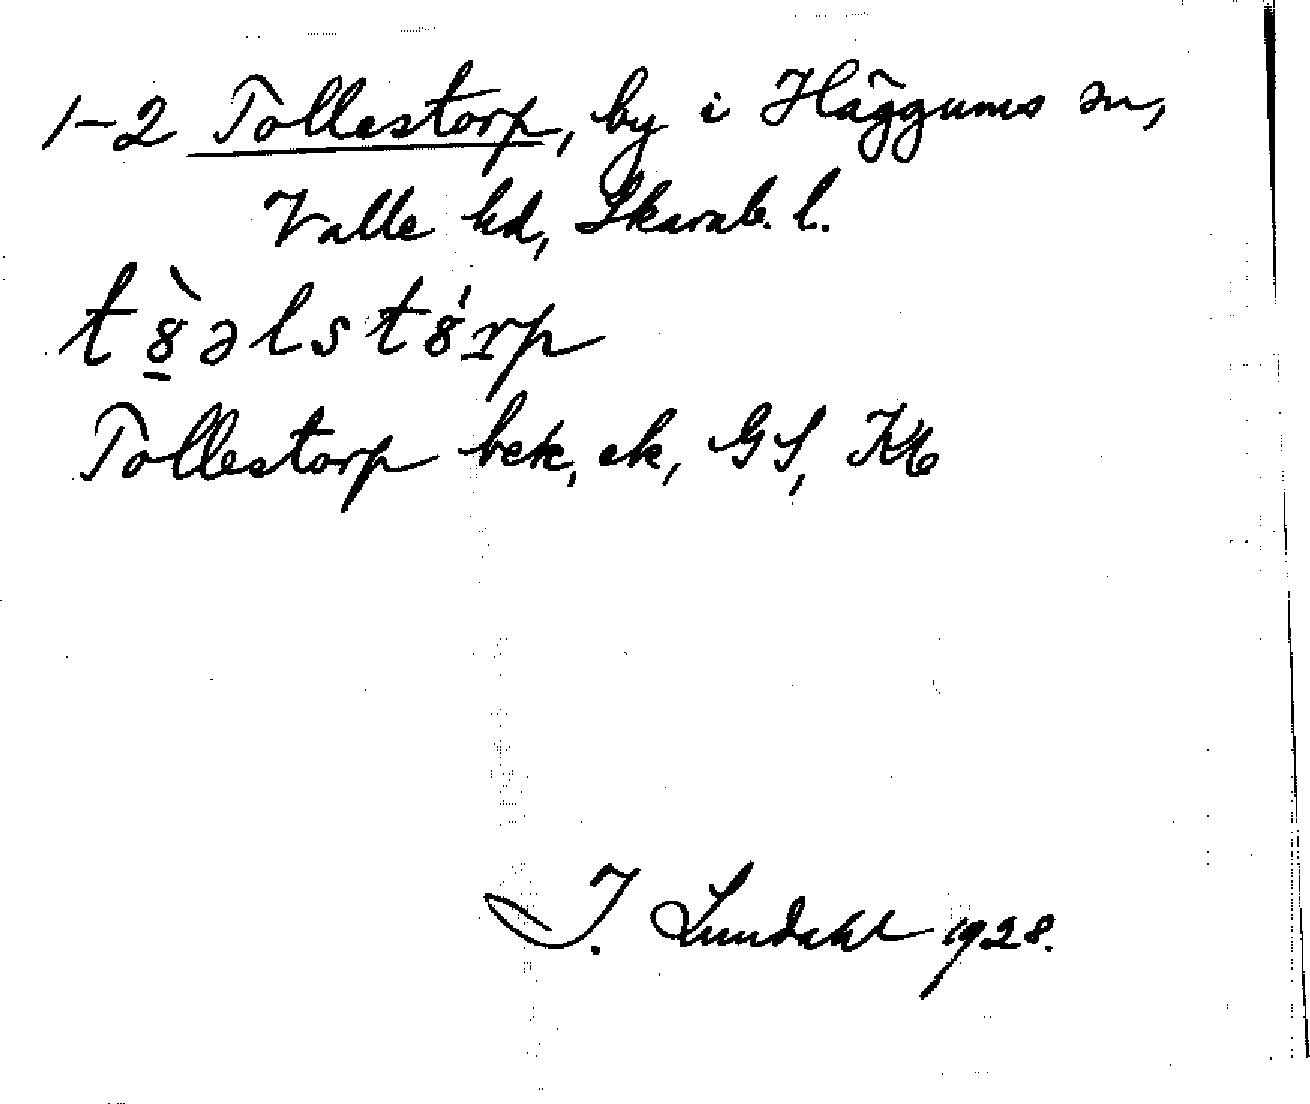 1-2 Tollestorp, by i Häggums sn,
Valle hd, Skarab. l.
t8̠̀əlst8́rp
Tollestorp bek, ek, GS, Kb
I. Lundahl 1928.